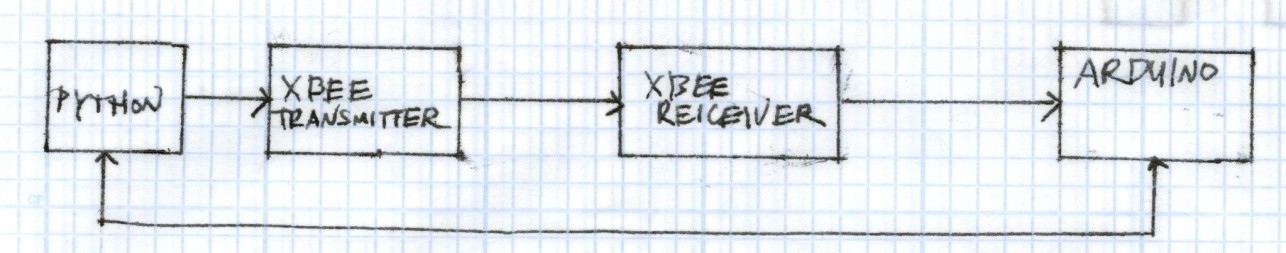 PYTHON
XBEE
TRANSMITTER
XBEE
REICEIVER
ARDUINO